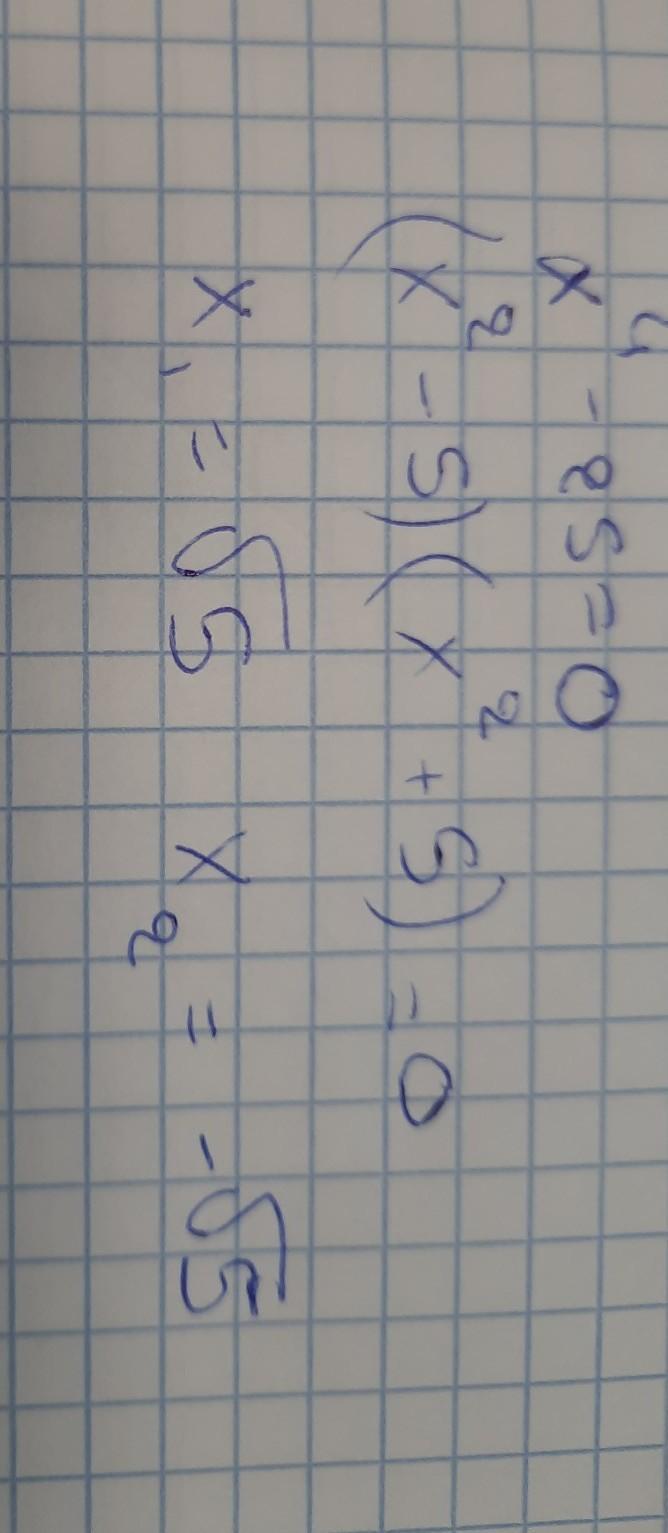 x⁴ - 25 = 0
(x² - 5)(x² + 5) = 0
x₁ = √5 x₂ = -√5